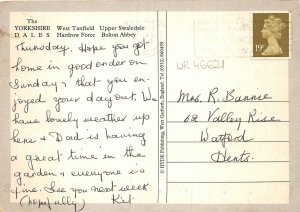 The
YORKSHIRE West Tanfield Upper Swaledale
DALES Hardrow Force Bolton Abbey
Thursday. Hope you got
home in good order on
Sunday & that you en-
joyed your day out. We
have lovely weather up
here & Dad is having
a great time in the
garden & everyone is
fine. See you next week
(hopefully) Kit
© HYDE Publishing, West Garforth, England. Tel (0532) 860459
UK 46621
19P
Mrs. R. Bannie
68 Valley Rise
Watford
Herts.